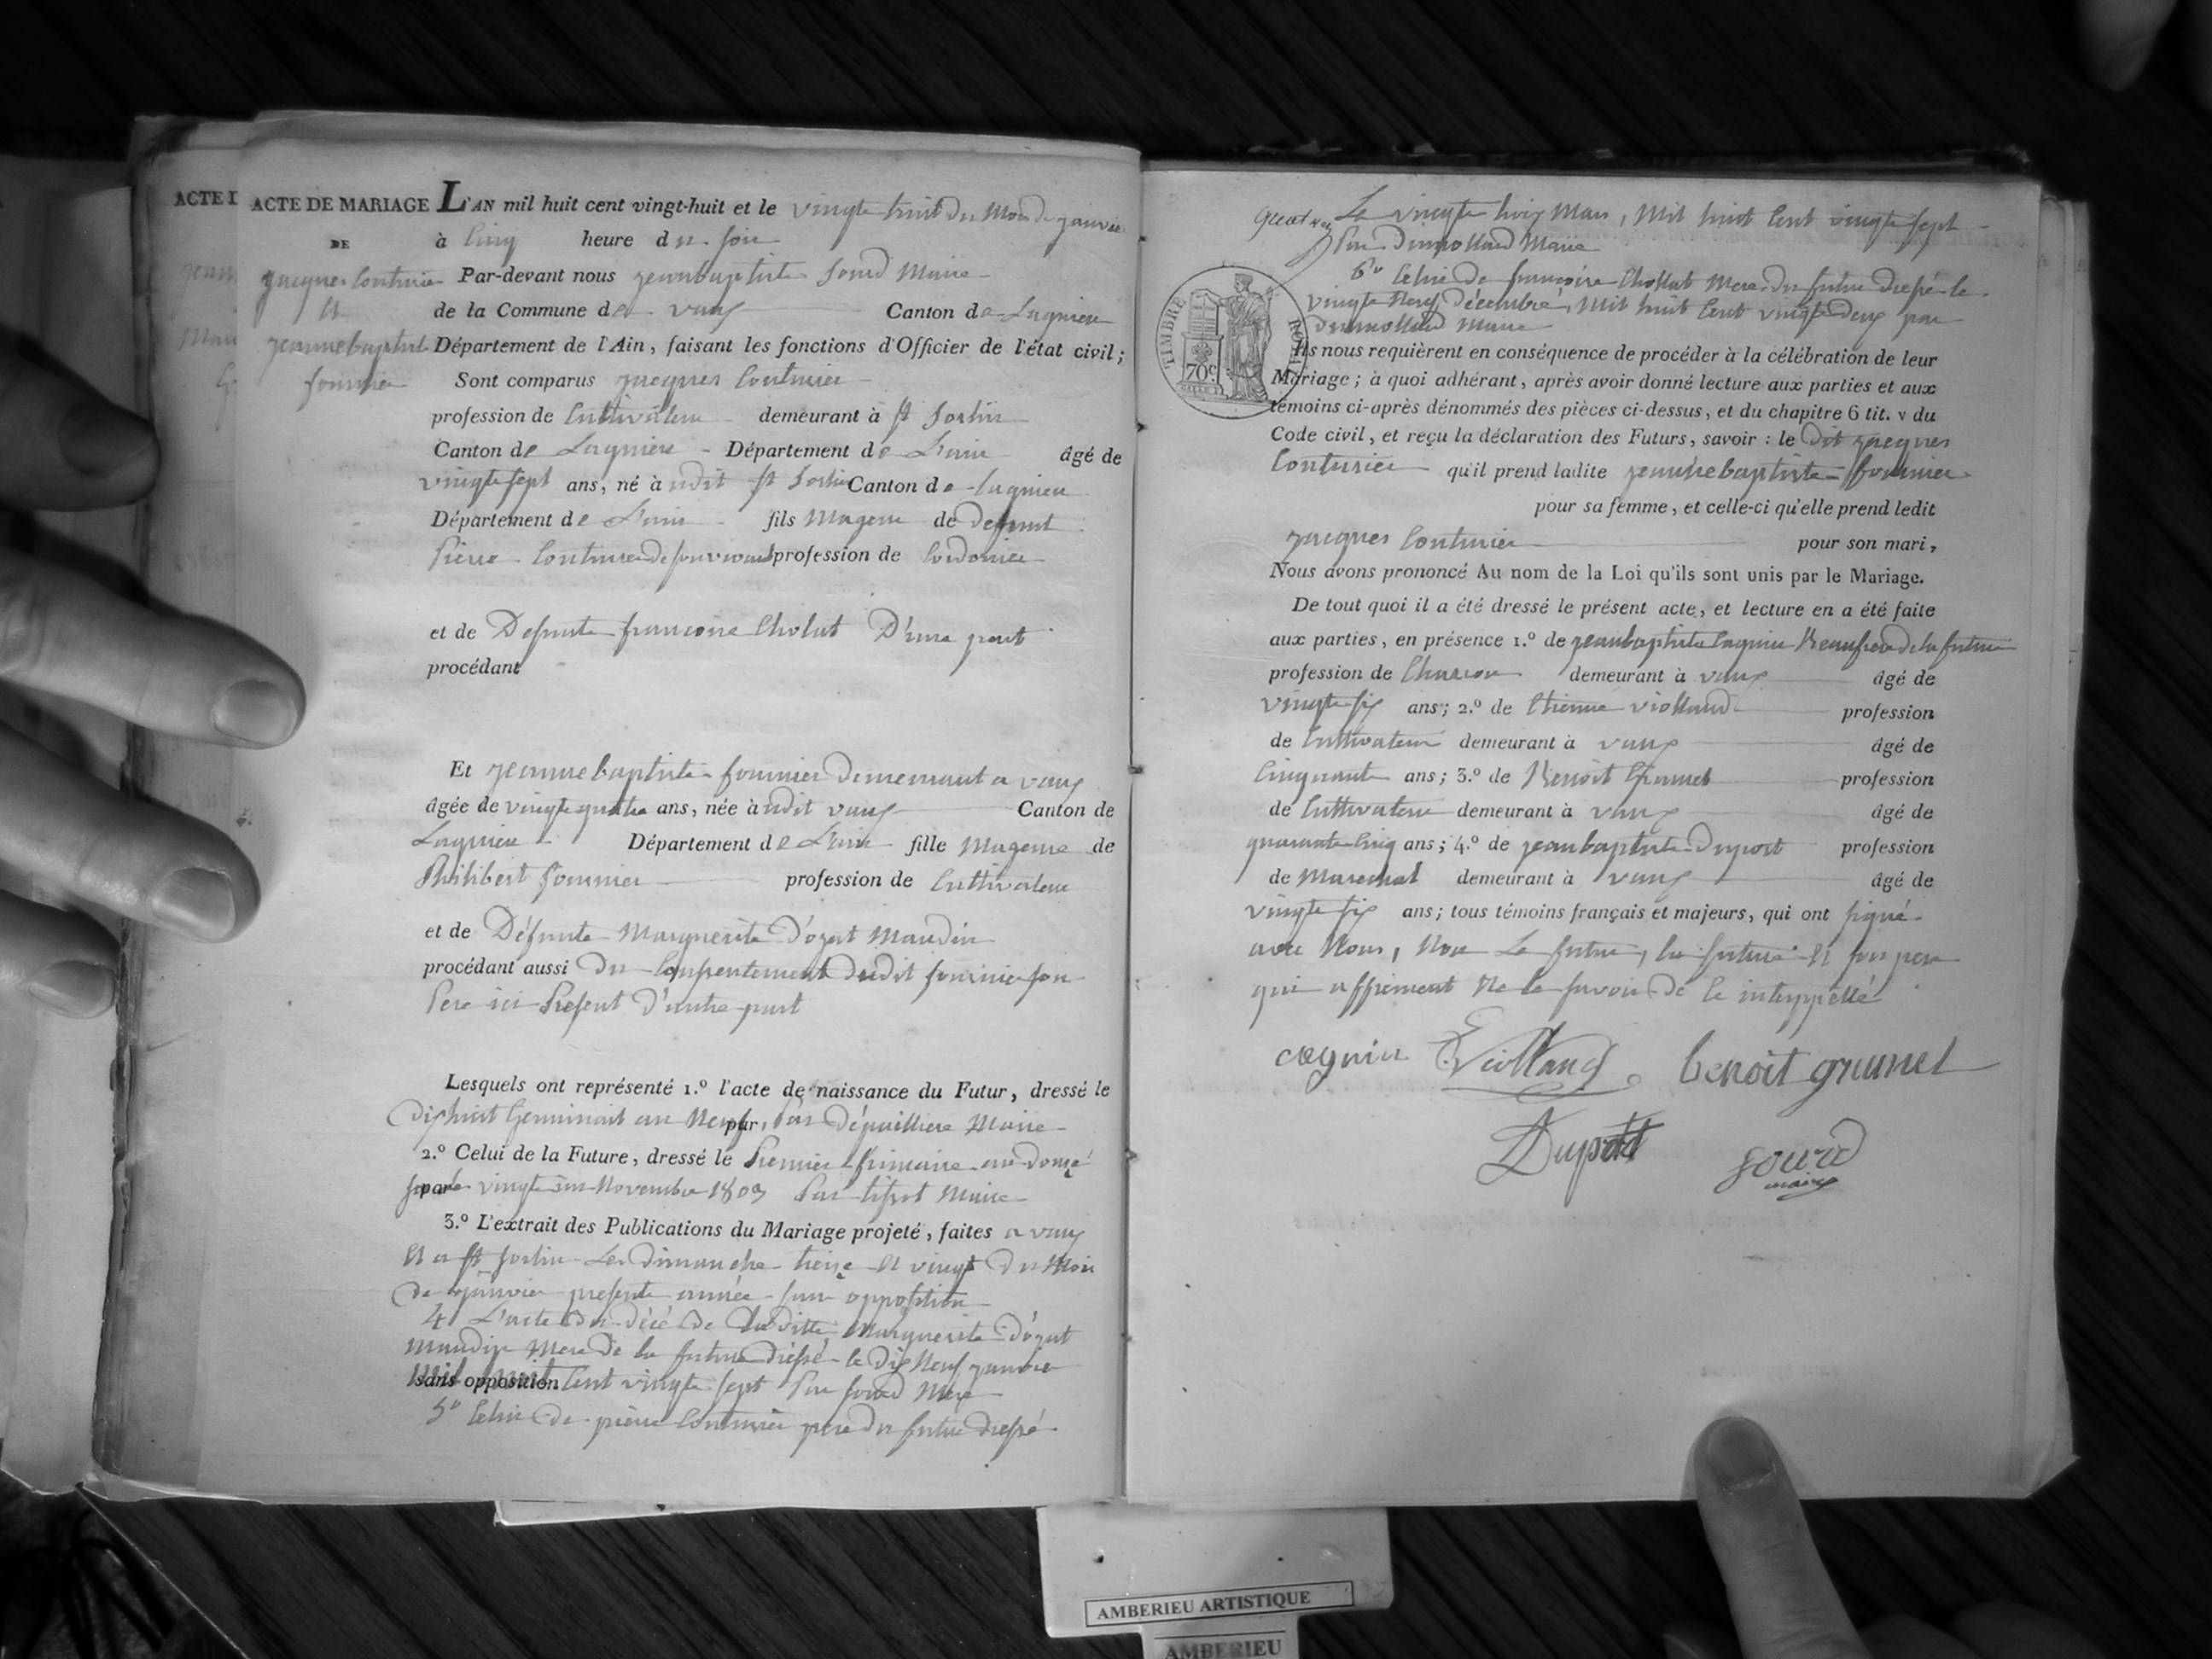 ACTE DE MARIAGE L'AN mil huit cent vingt-huit et le vingte huit du Mois de janvier
DE à Cinq heure du soir
jacques Couturier Par-devant nous jeanbaptiste Sourd Maire
Et de la Commune de vaux Canton de Lagnieu
jeannebaptiste Département de l'Ain, faisant les fonctions d'Officier de l'état civil;
fournier Sont comparus jacques Couturier
profession de Cultivateur demeurant à st Sorlin
Canton de Lagnieu Département de L'ain âgé de
vingte sept ans, né à udit st Sorlin Canton de lagnieu
Département de L'ain fils Mageur de defunt
Pierre Couturier de son vivant profession de Cordonier
et de Defunte francoise Cholat D'une part
procédant
Et jeannebaptiste fournier demeurant a vaux
âgée de vingte quatre ans, née à udit vaux Canton de
Lagnieu Département de L'ain fille Mageure de
Philibert fournier profession de Cultivateur
et de Défunte Marguerite D'ozat Maudin
procédant aussi du Consentement dudit fournier son
Pere ici Present D'autre part
Lesquels ont représenté 1.º l'acte de naissance du Futur, dressé le
dixhuit Germinait an Neuf par, Par Dépailliere Maire
2.º Celui de la Future, dressé le Premier frimaire an douze
par vingte novembre 1803 Par tissot Maire
3.º L'extrait des Publications du Mariage projeté, faites a vaux
Et a st sorlin Les dimanche treize Et vingt du Mois
de janvier presente année sans opposition
4 L'acte du décé de laditte Marguerite D'ozat
Maudin Mere de la future dressé le dix Neuf janvier
Mil huit sans opposition Cent vingte sept Par sourd Mere
5º Celui de pierre Couturier pere du futur dressé
Le vingte huit Mars, Mil huit Cent vingte sept
Par Dumollard Maire
6º Celui de francoise Chollat Mere du futur dressé le
vingte Neuf décembre, Mil huit Cent vingte deux par
Dumollard Maire
TIMBRE ROYAL
70c
Ils nous requièrent en conséquence de procéder à la célébration de leur
Mariage; à quoi adhérant, après avoir donné lecture aux parties et aux
témoins ci-après dénommés des pièces ci-dessus, et du chapitre 6 tit. v du
Code civil, et reçu la déclaration des Futurs, savoir : le dit jacques
Couturier qu'il prend ladite jeannebaptiste fournier
pour sa femme, et celle-ci qu'elle prend ledit
jacques Couturier pour son mari,
Nous avons prononcé Au nom de la Loi qu'ils sont unis par le Mariage.
De tout quoi il a été dressé le présent acte, et lecture en a été faite
aux parties, en présence 1.º de jeanbaptiste Cagnin Beaufrere de la future
profession de Charron demeurant à vaux âgé de
vingte six ans; 2.º de Etienne Violland profession
de Cultivateur demeurant à vaux âgé de
Cinquante ans; 3.º de Benoit Grumel profession
de Cultivateur demeurant à vaux âgé de
quarante Cinq ans; 4.º de jeanbaptiste Duport profession
de Marechal demeurant à vaux âgé de
vingte six ans; tous témoins français et majeurs, qui ont signé
avec Nous, Non Le futur, la future Et son pere
qui affirment Ne le savoir de Ce interpellé
cagnin E Violland benoit grumel
Duport sourd
maire
AMBERIEU ARTISTIQUE
AMBERIEU